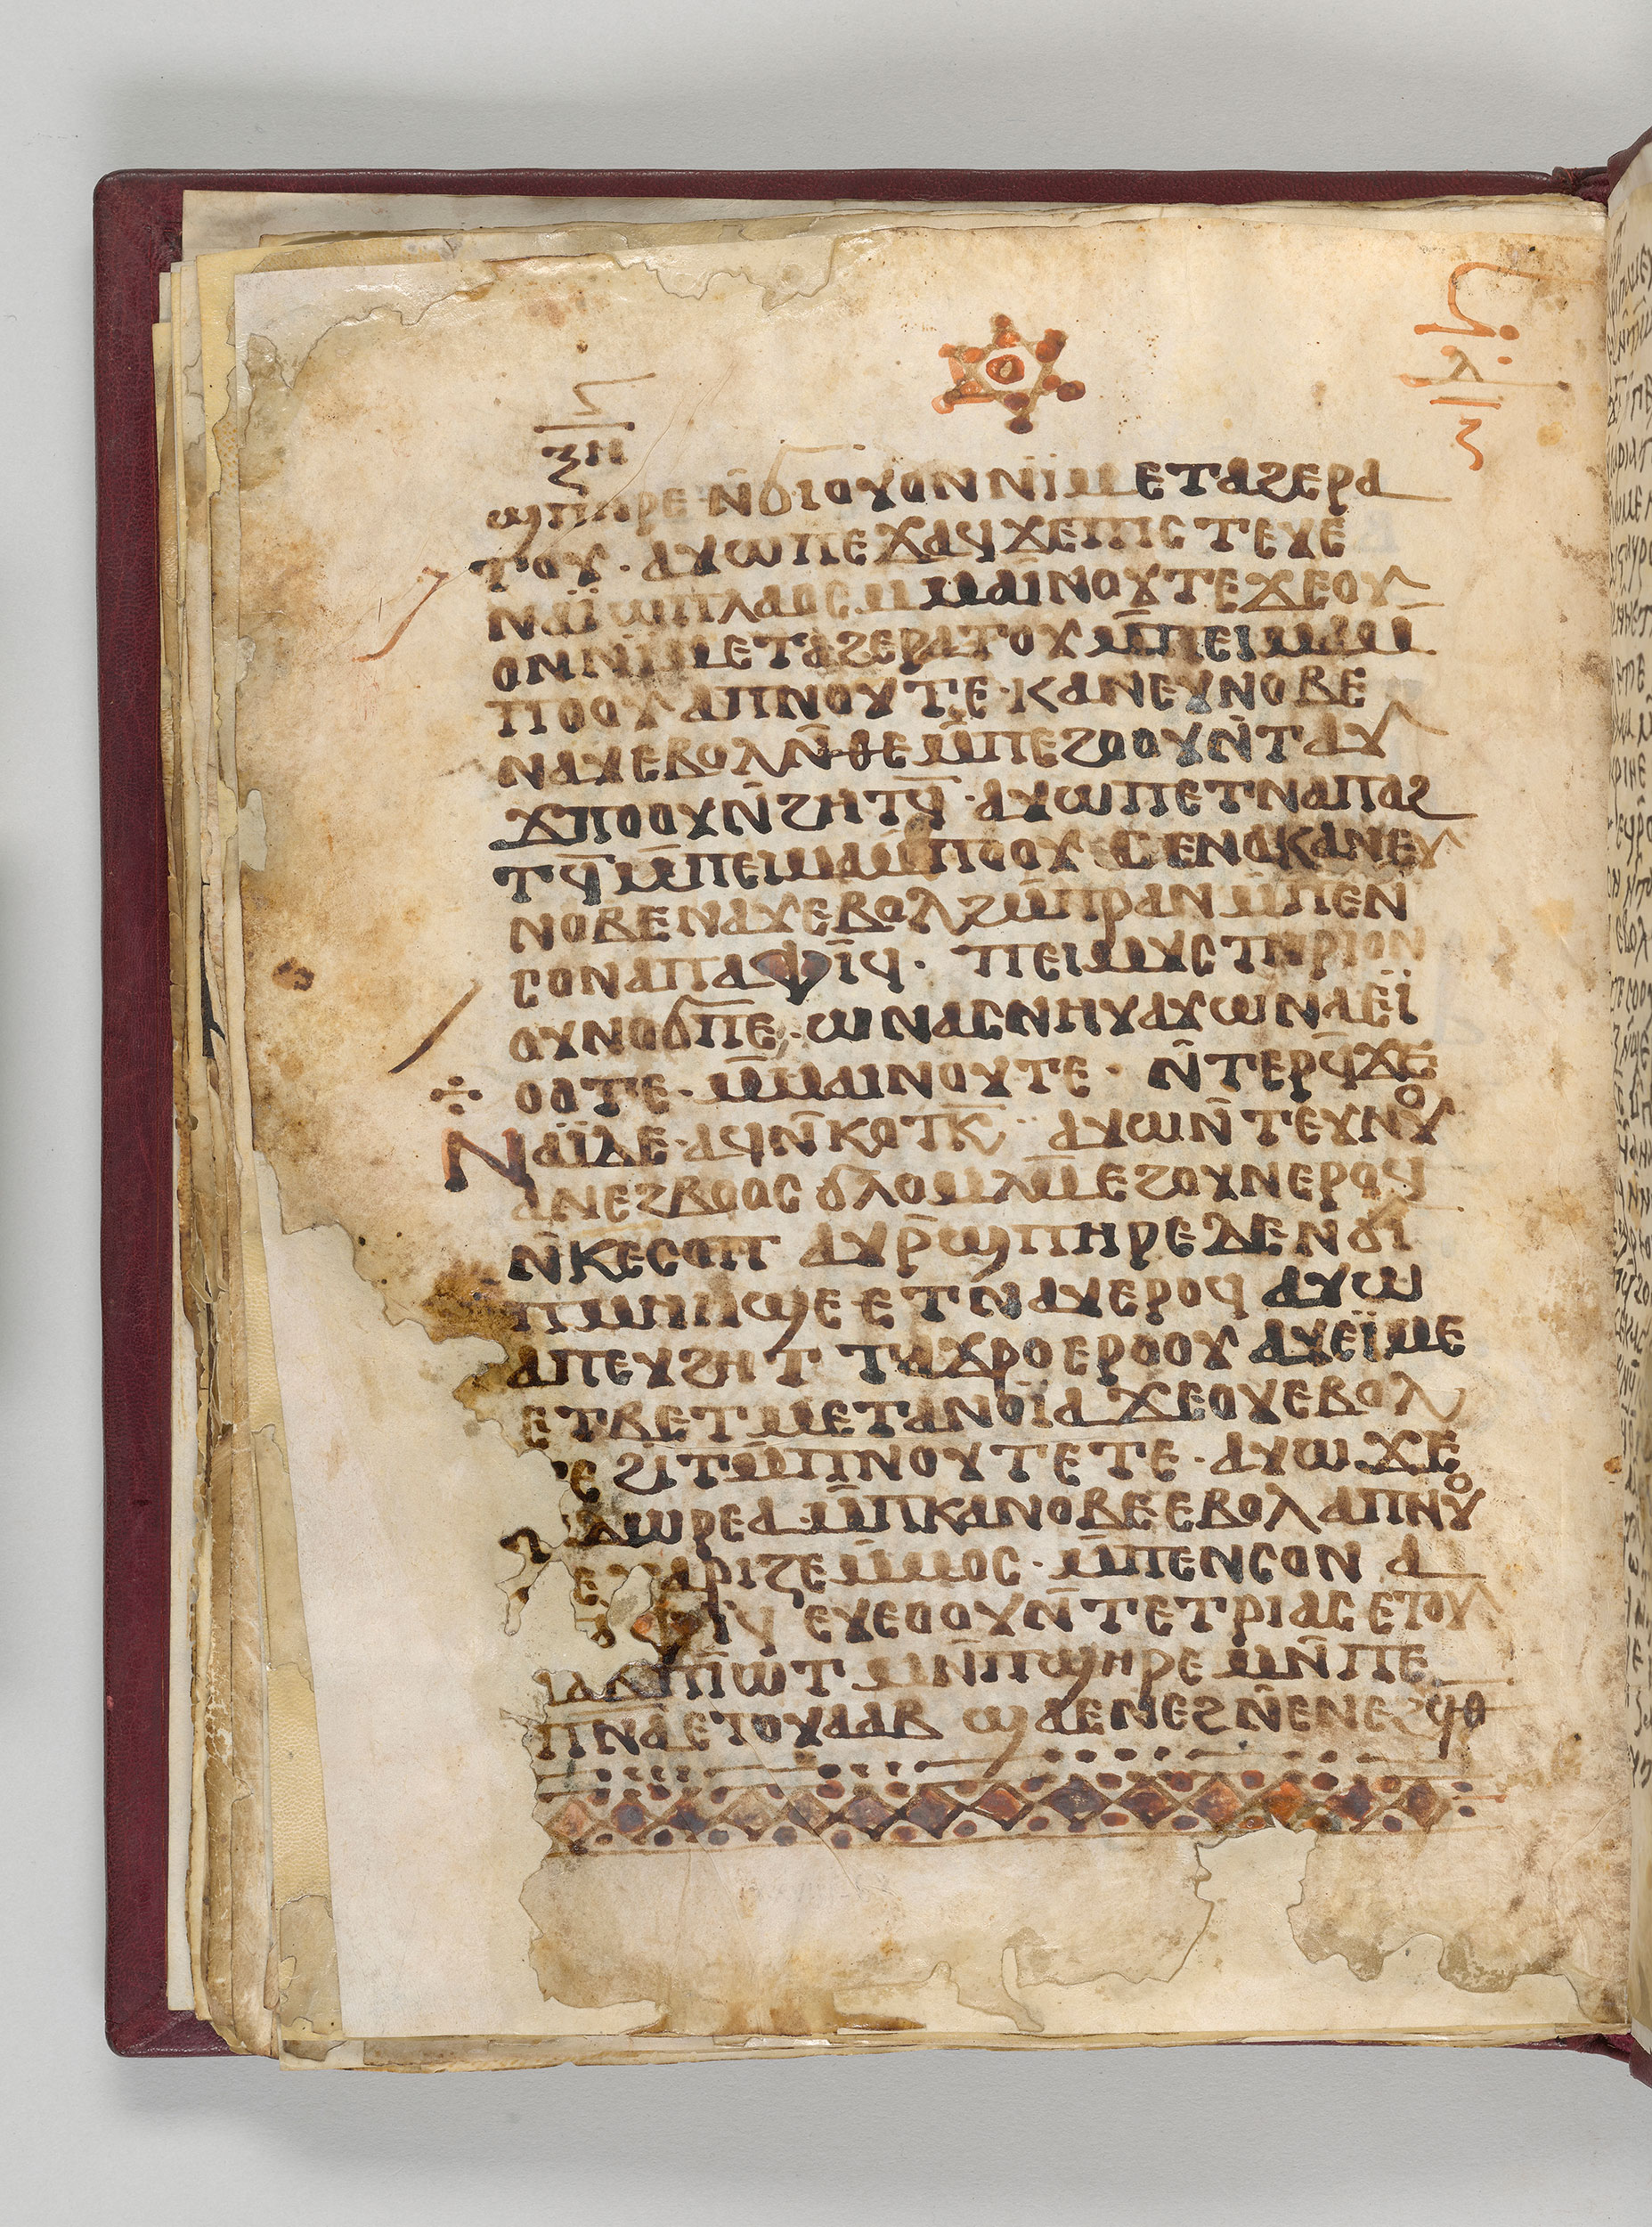 ϣⲡⲏⲣⲉ ⲛ̄ϭⲓⲟⲩⲟⲛ ⲛⲓⲙ ⲉⲧⲁϩⲉⲣⲁ
ⲧⲟⲩ · ⲁⲩⲱ ⲡⲉϫⲁϥ ϫⲉⲡⲓⲥⲧⲉⲩⲉ
ⲛⲁⲓ̈ ⲱⲡⲗⲁⲟⲥ ⲙ̄ⲙⲁⲓⲛⲟⲩⲧⲉ ϫⲉⲟⲩ
ⲟⲛ ⲛⲓⲙ ⲉⲧⲁϩⲉⲣⲁⲧⲟⲩ ⲙ̄ⲡⲉⲓⲙⲁ ⲙ
ⲡⲟⲟⲩ ⲁⲡⲛⲟⲩⲧⲉ · ⲕⲁⲛⲉⲩⲛⲟⲃⲉ
ⲛⲁⲩ ⲉⲃⲟⲗ ⲛ̄ⲑⲉ ⲙ̄ⲡⲉϩⲟⲟⲩ ⲛ̄ⲧⲁⲩ
ϫⲡⲟⲟⲩ ⲛ̄ϩⲏⲧϥ̄ · ⲁⲩⲱ ⲡⲉⲧⲛⲁⲡⲁϩ
ⲧϥ̄ ⲙ̄ⲡⲉⲓⲙⲁ ⲙ̄ⲡⲟⲟⲩ ⲥⲉⲛⲁⲕⲁⲛⲉⲩ
ⲛⲟⲃⲉ ⲛⲁⲩ ⲉⲃⲟⲗ ϩⲙ̄ⲡⲣⲁⲛ ⲙ̄ⲡⲉⲛ
ⲥⲟⲛ ⲁⲡⲁ ⲫⲓ̄ϥ · ⲡⲉⲓⲙⲩⲥⲧⲏⲣⲓⲟⲛ
ⲟⲩⲛⲟϭ ⲡⲉ · ⲱ ⲛⲁⲥⲛⲏⲩ ⲁⲩⲱ ⲛⲁⲉⲓ̈
ⲟⲟⲧⲉ · ⲙ̄ⲙⲁⲓⲛⲟⲩⲧⲉ · ⲛ̄ⲧⲉⲣϥ̄ϫⲉ
ⲛⲁⲓ̈ ⲇⲉ · ⲁϥⲛ̄ⲕⲟⲧⲕ̄ · ⲁⲩⲱ ⲛ̄ⲧⲉⲩⲛⲟⲩ
ⲁⲛⲉϩⲃⲟⲟⲥ ϭⲗⲟⲙⲗⲙ ⲉϩⲟⲩⲛ ⲉⲣⲟϥ
ⲛ̄ⲕⲉⲥⲟⲡ ⲁⲩⲣ̄ϣⲡⲏⲣⲉ ⲇⲉ ⲛϭⲓ
ⲡⲙⲏⲏϣⲉ ⲉⲧⲛⲁⲩ ⲉⲣⲟϥ ⲁⲩⲱ
ⲁⲡⲉⲩϩⲏⲧ ⲧⲁϫⲣⲟ ⲉⲣⲟⲟⲩ ⲁⲩⲉⲓ̈ⲙⲉ
ⲉⲧⲃⲉⲧⲙⲉⲧⲁⲛⲟⲓ̈ⲁ ϫⲉⲟⲩⲉⲃⲟⲗ
ⲧⲉ ϩⲓⲧⲙ̄ⲡⲛⲟⲩⲧⲉ ⲧⲉ · ⲁⲩⲱ ϫⲉ
ⲇⲱⲣⲉⲁ ⲙ̄ⲡⲕⲁⲛⲟⲃⲉ ⲉⲃⲟⲗ ⲁⲡⲛⲟⲩ
ⲧⲉ ⲭⲁⲣⲓⲍⲉ ⲙ̄ⲙⲟⲥ · ⲙ̄ⲡⲉⲛⲥⲟⲛ ⲁ
ⲫⲓϥ ⲉⲩⲉⲟⲟⲩ ⲛ̄ⲧⲉⲧⲣⲓⲁⲥ ⲉⲧⲟⲩ
ⲁⲁⲃ ⲡⲓⲱⲧ ⲙⲛ̄ⲡϣⲏⲣⲉ ⲙⲛ̄ⲡⲉ
ⲡⲛ̄ⲁ̄ ⲉⲧⲟⲩⲁⲁⲃ ϣⲁⲉⲛⲉϩ ⲛ̄ⲉⲛⲉϩ ϥⲑ